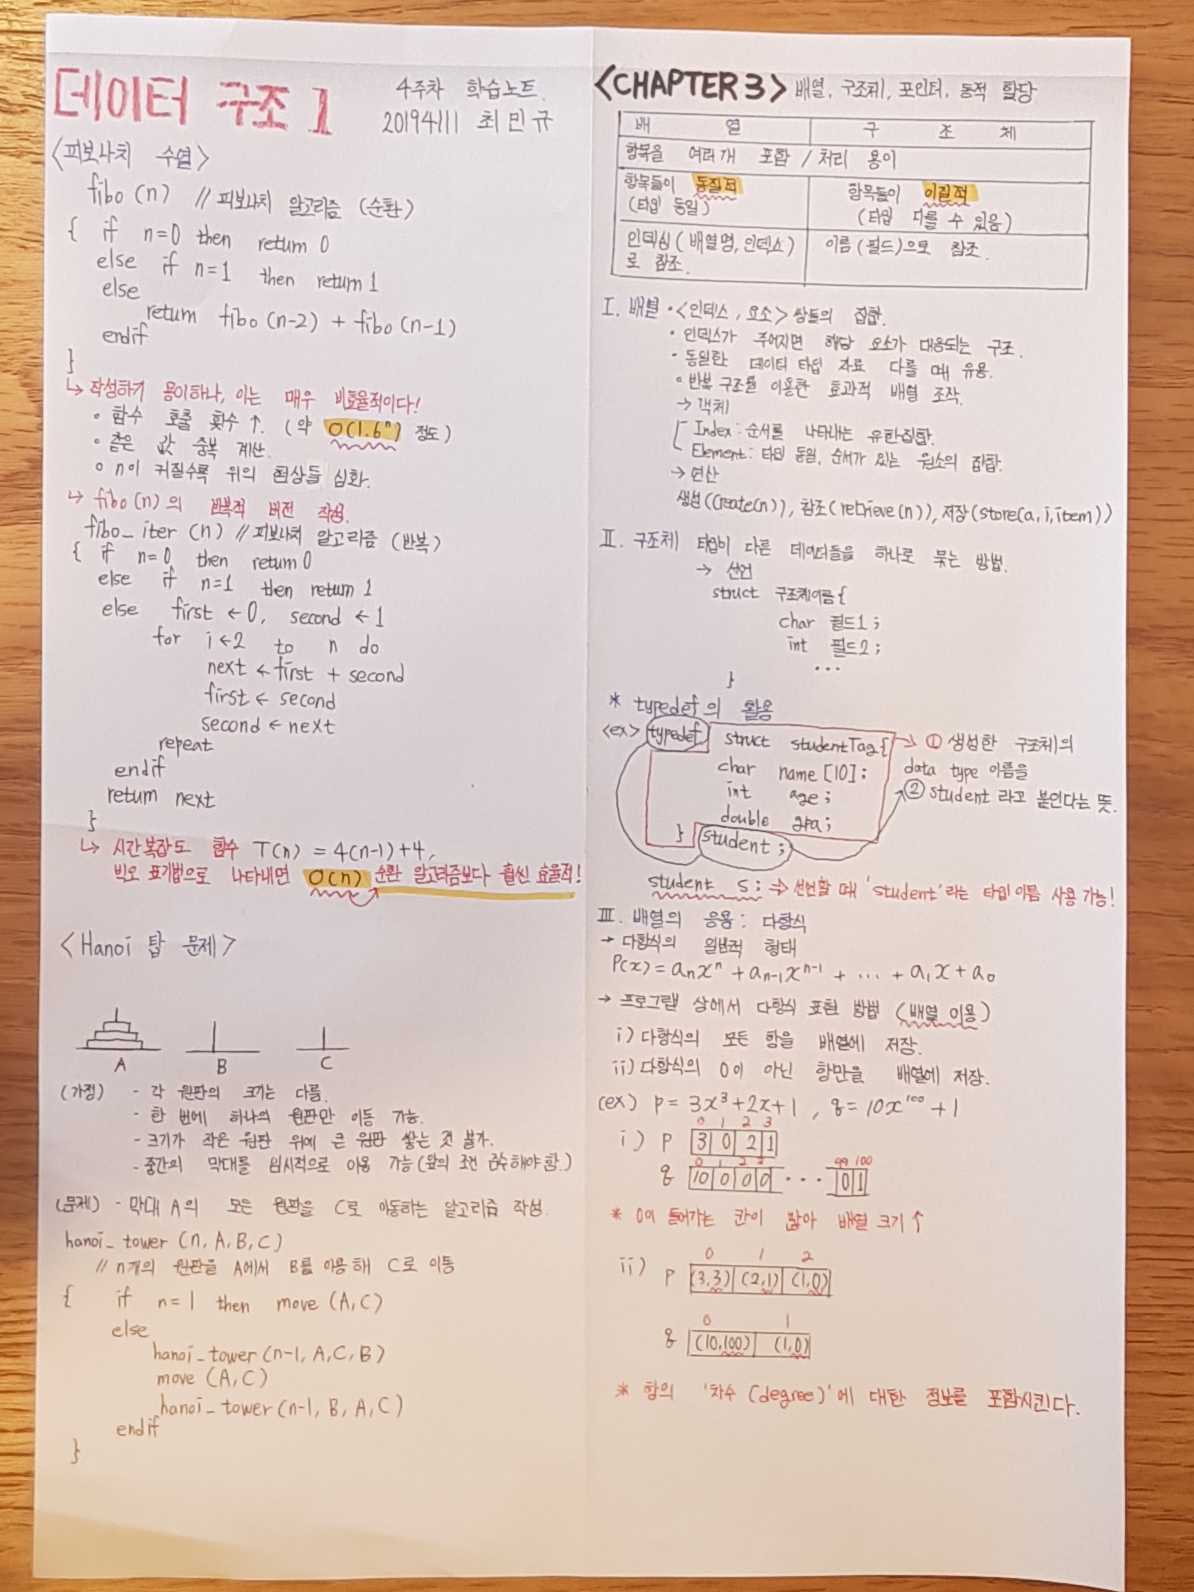 데이터 구조 1
4주차 학습노트
20194111 최민규
<피보나치 수열>
fibo (n) // 피보나치 알고리즘 (순환)
{ if n=0 then return 0
else if n=1 then return 1
else
return fibo (n-2) + fibo (n-1)
endif
}
↳ 작성하기 용이하나, 이는 매우 비효율적이다!
∘ 함수 호출 횟수 ↑. (약 O(1.6ⁿ) 정도)
∘ 같은 값 중복 계산.
∘ n이 커질수록 위의 현상들 심화.
↳ fibo (n) 의 반복적 버전 작성.
fibo_iter (n) // 피보나치 알고리즘 (반복)
{ if n=0 then return 0
else if n=1 then return 1
else first ← 0, second ← 1
for i ← 2 to n do
next ← first + second
first ← second
second ← next
repeat
endif
return next
}
↳ 시간 복잡도 함수 T(n) = 4(n-1)+4,
빅오 표기법으로 나타내면 O(n) 순환 알고리즘보다 훨씬 효율적!
<Hanoi 탑 문제>
A B C
(가정) - 각 원판의 크기는 다름.
- 한 번에 하나의 원판만 이동 가능.
- 크기가 작은 원판 위에 큰 원판 쌓는 것 불가.
- 중간의 막대를 임시적으로 이용 가능 (앞의 조건 준수해야 함.)
(문제) - 막대 A의 모든 원판을 C로 이동하는 알고리즘 작성.
hanoi_tower (n, A, B, C)
// n개의 원판을 A에서 B를 이용해 C로 이동
{ if n=1 then move (A, C)
else
hanoi_tower (n-1, A, C, B)
move (A, C)
hanoi_tower (n-1, B, A, C)
endif
}
<CHAPTER 3> 배열, 구조체, 포인터, 동적 할당
배 열 구 조 체
항목을 여러개 포함 / 처리 용이
항목들이 동질적 (타입 동일) 항목들이 이질적 (타입 다를 수 있음)
인덱싱 (배열명, 인덱스) 로 참조. 이름 (필드)으로 참조.
Ⅰ. 배열 · <인덱스, 요소> 쌍들의 집합.
• 인덱스가 주어지면 해당 요소가 대응되는 구조.
• 동일한 데이터 타입 자료 다룰 때 유용.
• 반복 구조를 이용한 효과적 배열 조작.
→ 객체
Index : 순서를 나타내는 유한집합.
Element : 타입 동일, 순서가 있는 원소의 집합.
→ 연산
생성 (Create(n)), 참조 (retrieve(n)), 저장 (store(a, i, item))
Ⅱ. 구조체 타입이 다른 데이터들을 하나로 묶는 방법.
→ 선언
struct 구조체이름 {
char 필드1 ;
int 필드2 ;
...
}
* typedef 의 활용
<ex> typedef struct studentTag {
char name [10] ;
int age ;
double gpa ;
} student ;
→ ① 생성한 구조체의
data type 이름을
② student 라고 붙인다는 뜻.
student s ; ⇒ 선언할 때 'student'라는 타입이름 사용 가능!
Ⅲ. 배열의 응용 : 다항식
→ 다항식의 일반적 형태
P(x) = aₙxⁿ + aₙ₋₁xⁿ⁻¹ + ... + a₁x + a₀
→ 프로그램 상에서 다항식 표현 방법 (배열 이용)
i) 다항식의 모든 항을 배열에 저장.
ii) 다항식의 0이 아닌 항만을 배열에 저장.
(ex) p = 3x³+2x+1 , q = 10x¹⁰⁰+1
0 1 2 3
i) p 3 0 2 1
0 1 2 3 99 100
q 10 0 0 0 ... 0 1
* 0이 들어가는 칸이 많아 배열 크기 ↑
0 1 2
ii) p (3,3) (2,1) (1,0)
0 1
q (10,100) (1,0)
* 항의 '차수 (degree)'에 대한 정보를 포함시킨다.